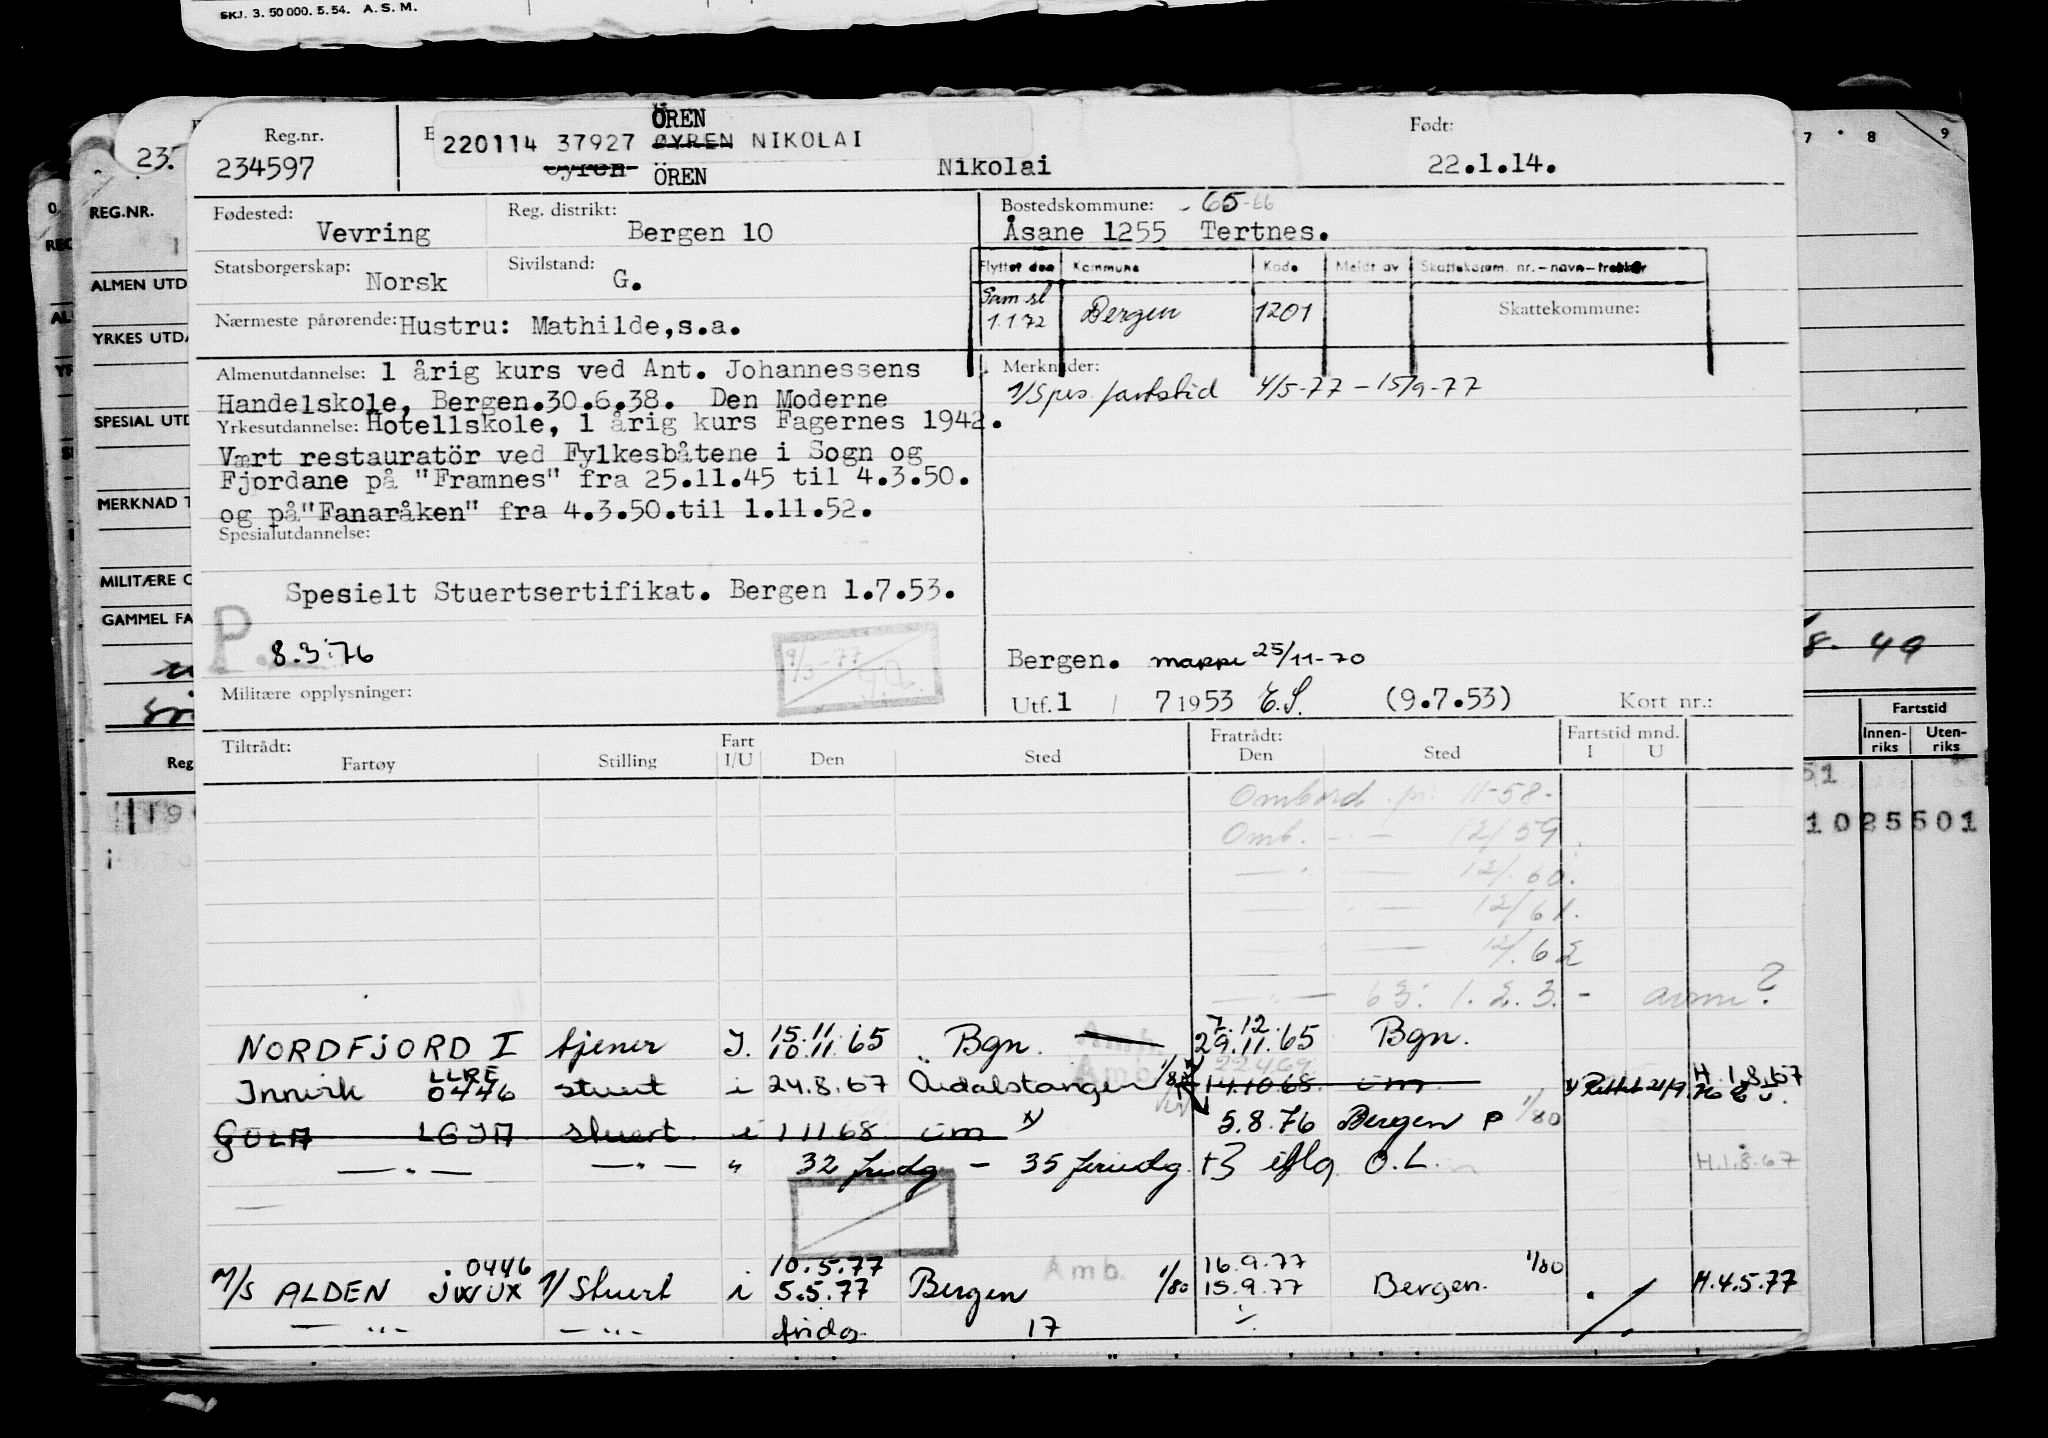 SKJ. 3. 50 000. 5. 54. A. S. M.
Reg.nr.
234597
ÖREN
220114 37927 ØYREN NIKOLAI
Øyren ÖREN
Nikolai
Født:
22.1.14.
Fødested:
Vevring
Reg. distrikt:
Bergen 10
Bostedskommune: 65-66
Åsane 1255 Tertnes.
Statsborgerskap:
Norsk
Sivilstand:
G.
Flyttet den Kommune Kode Meldt av Skattekomm. nr.-navn-trekker
Sam sl
1.1.72 Bergen 1201
Skattekommune:
Nærmeste pårørende: Hustru: Mathilde,s.a.
Almenutdannelse: 1 årig kurs ved Ant. Johannessens
Handelskole, Bergen.30.6.38. Den Moderne
Yrkesutdannelse: Hotellskole, 1 årig kurs Fagernes 1942.
Vært restauratör ved Fylkesbåtene i Sogn og
Fjordane på "Framnes" fra 25.11.45 til 4.3.50.
og på"Fanaråken" fra 4.3.50.til 1.11.52.
Spesialutdannelse:
Spesielt Stuertsertifikat. Bergen 1.7.53.
P.
8.3.76
9/3-77
Militære opplysninger:
Merknader:
1/Spes fartstid 4/5-77 - 15/9-77
Bergen. mappe 25/11-70
Utf. 1 / 7 1953 E.S. (9.7.53)
Kort nr.:
Tiltrådt:
Fartøy
Stilling
Fart
I/U
Den
Sted
Fratrådt:
Den
Sted
Fartstid mnd.
I U
Ombord pr. 11-58.
Omb. - - 12/59.
12/.60.
12/61.
12/.62
63: 1.2.3. - avm?
NORDFJORD I tjener I. 15.11. 10.11.65 Bgn. Amb. 7.12. 29.11.65 Bgn.
Innvik LLRE 0446 stuert i 24.8.67 Årdalstangen Amb. 1/80 14.10.68 um H.1.8.67
5.8.76 Bergen P 1/80
GULA LGJA stuert i 1 11 68 um
— " — — " — " 32 fridg - 35 feriedg. +3 O.L. H.1.8.67
M/S ALDEN 0446 JWUX 1/ Stuert i 10.5.77 5.5.77 Bergen Amb. 1/80 16.9.77 15.9.77 Bergen. 1/80 H.4.5.77
— " — — " — fridg. 17
REG.NR.
ALMEN UTD
YRKES UTDA
SPESIAL UTD
MERKNAD T
MILITÆRE O
GAMMEL FA
Reg
7 8 9
8-49
Fartstid
Innen-
riks
Uten-
riks
51
1025501